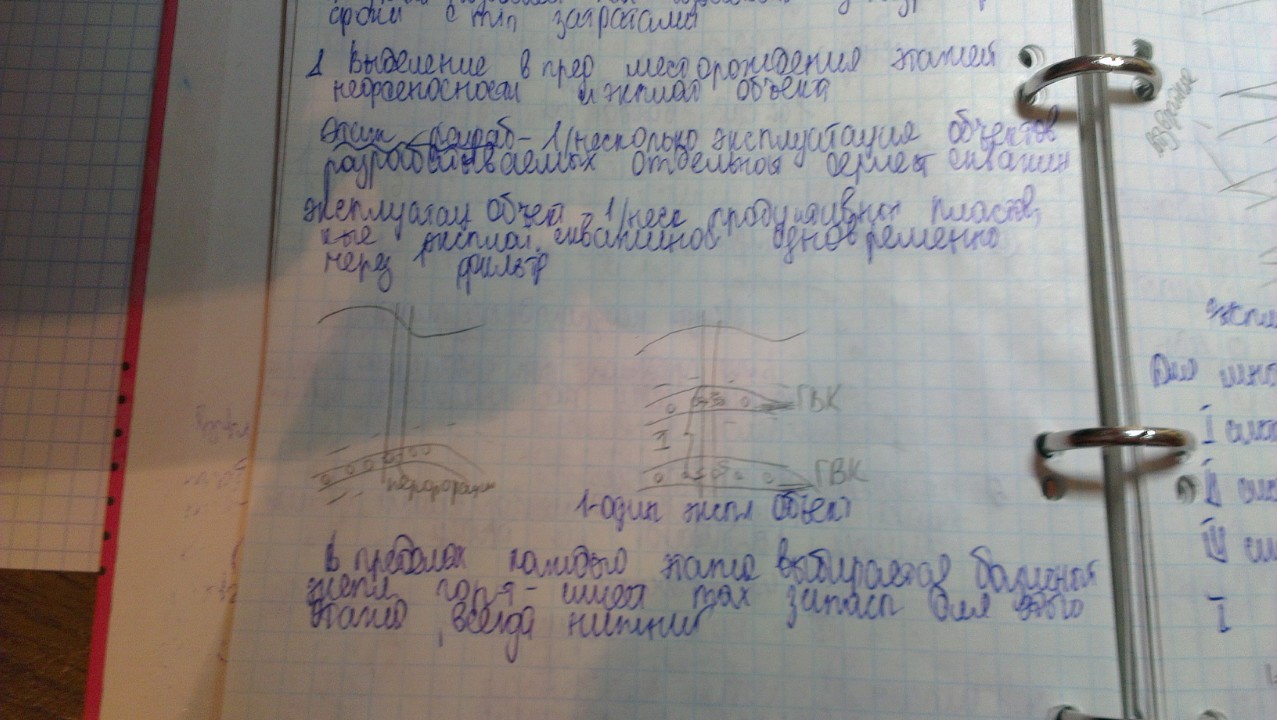 сроки с min затратами
1 Выделение в пред месторождения этажей
нефтеносности и экплат объека
Этаж разраб - 1/несколько эксплуатация объектов
разрабатываемых отдельной серией скважин
эксплуатац объект - 1/неск продуктивных пластов,
кые эксплат скважиной одновременно
через фильтр
ГВК
1
перфорации
ГВК
1-один экпл объект
В пределах каждого этажа выбирается базисный
экпл гор-т - имеет max запасы для этого
этажа, всегда нижний
экспл
Для мно
I сист
II сис
III си
I